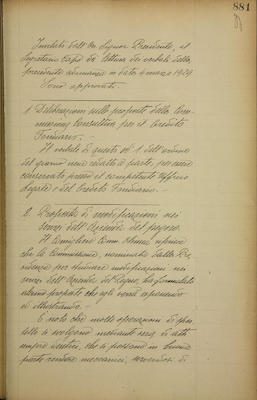 881
Invitato dall' On. Signor Presidente, il
Segretario Capo dà lettura dei verbali della
precedente adunanza in data 4 marzo 1929
Sono approvati.
1. Deliberazioni sulle proposte della Com-
missione Consultiva per il Credito
Fondiario. -
Il verbale di questo N° 1 dell'ordine
del giorno viene redatto a parte, per essere
conservato presso il competente Ufficio
Legale del Credito Fondiario. -
2. Proposte di modificazioni nei
servizi dell'Azienda del pegno.
Il Consigliere Comm. riferisce
che la Commissione, nominata dalla Pre-
sidenza per studiare modificazioni nei
servizi dell'Azienda del Pegno, ha formulato
proposte che egli verrà esponendo
ed illustrando. -
È noto che molte operazioni di spor-
tello si svolgono mediante una serie di atti
sempre identici, che si possono in buona
parte rendere meccanici, servendosi di